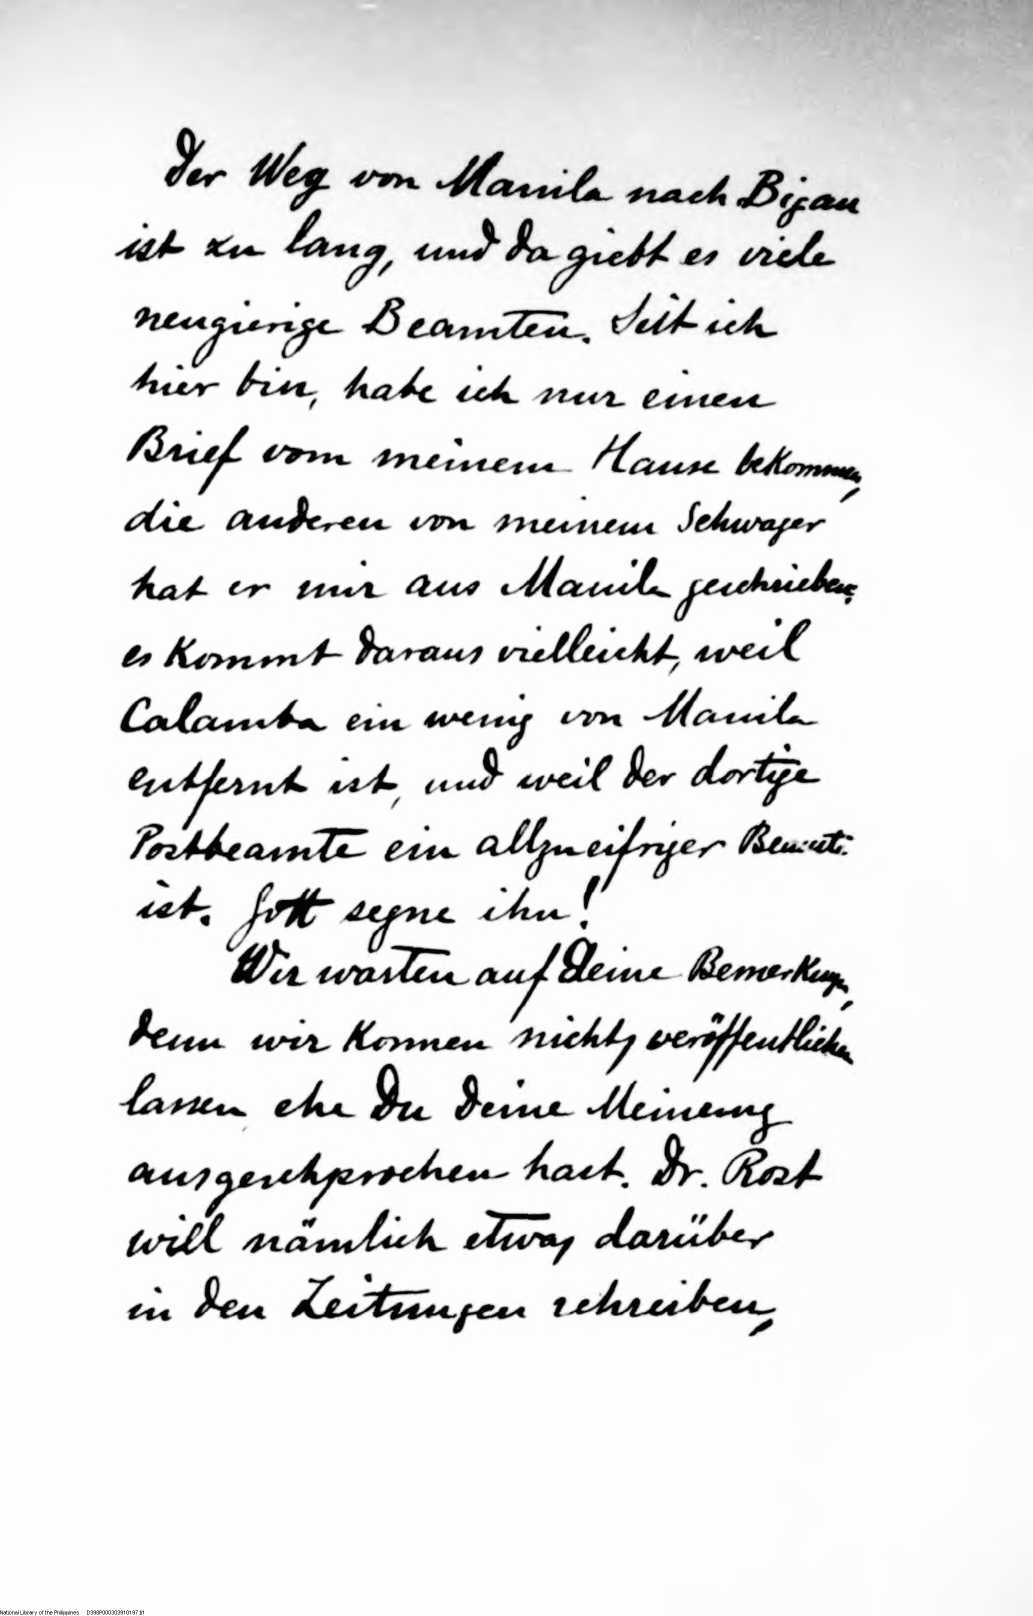 Der Weg von Manila nach Bigan
ist zu lang, und da giebt es viele
neugierige Beamten. Seit ich
hier bin, habe ich nur einen
Brief vom meinem Hause bekommen,
die anderen von meinem Schwager
hat er mir aus Manila geschrieben;
es kommt daraus vielleicht, weil
Calamba ein wenig von Manila
entfernt ist, und weil der dortige
Postbeamte ein allzueifriger
ist. Gott segne ihn!
Wir warten auf Deine
denn wir konnen nichts veröffentlichen
lassen ehe Du Deine Meinung
ausgeschprochen hast. Dr. Rost
will nämlich etwas darüber
in den Zeitungen schreiben,
National Library of the Philippines